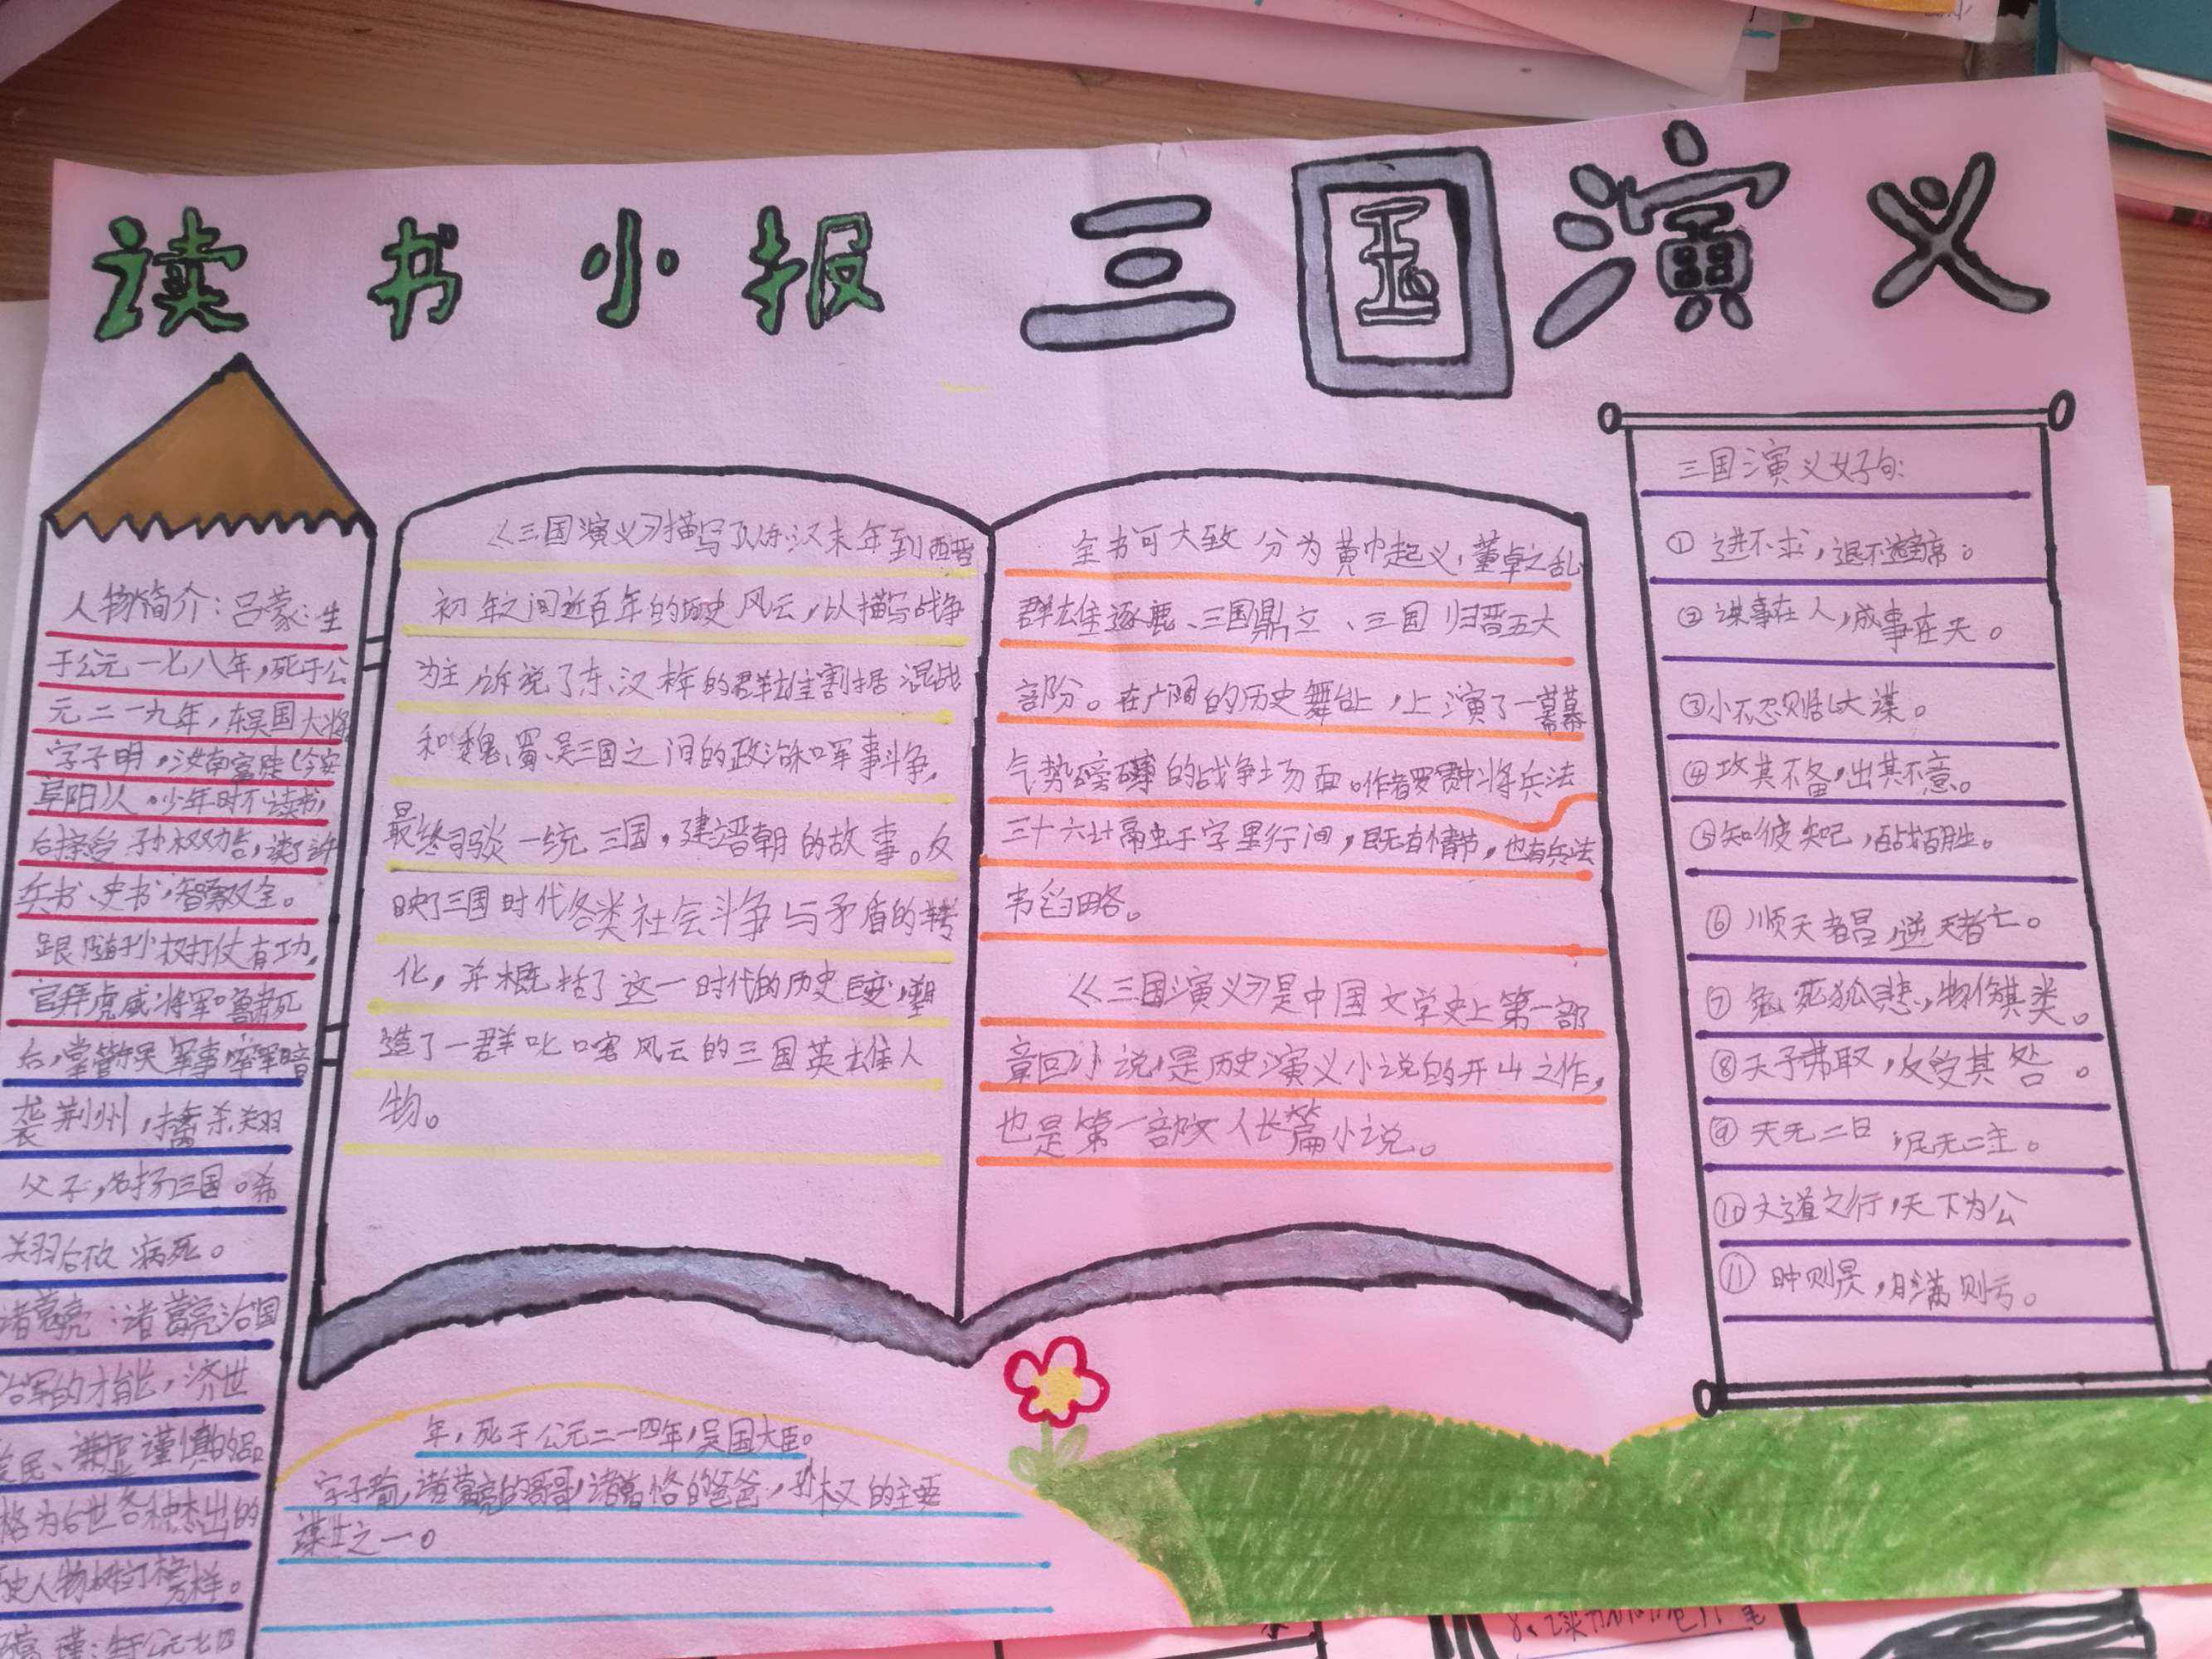 读书小报 三国演义
人物简介：吕蒙：生
于公元一七八年，死于公
元二一九年，东吴国大将
字子明，汝南富陂（今安
阜阳）人。少年时不读书，
后接受孙权劝告，读了许
兵书、史书，智家双全。
跟随孙权打仗有功，
官拜虎威将军。鲁肃死
后，掌管东吴军事，率军暗
袭荆州，擒杀关羽
父子，名扬三国。杀
关羽后故病死。
诸葛亮：诸葛亮治国
治军的才能，济世
爱民、谦虚谨慎的品
格为后世各种杰出的
历史人物树立了榜样。
瑾：生于公元一七四
《三国演义》描写了从东汉末年到西晋
初年之间近百年的历史风云，以描写战争
为主，诉说了东汉末年的群雄割据混战
和魏、蜀、吴三国之间的政治和军事斗争，
最终司马炎一统三国，建立晋朝的故事。反
映了三国时代各类社会斗争与矛盾的转
化，并概括了这一时代的历史巨变，塑
造了一群叱咤风云的三国英雄人
物。
全书可大致分为黄巾起义、董卓之乱
群雄逐鹿、三国鼎立、三国归晋五大
部份。在广阔的历史舞台，上演了一幕幕
气势磅礴的战争场面。作者罗贯中将兵法
三十六计融于字里行间，既有情节，也有兵法
韦韬略。
《三国演义》是中国文学史上第一部
章回小说，是历史演义小说的开山之作，
也是第一部文人长篇小说。
三国演义好句：
①进不求，退不避席。
②谋事在人，成事在天。
③小不忍则乱大谋。
④攻其不备，出其不意。
⑤知彼知己，百战百胜。
⑥顺天者昌，逆天者亡。
⑦兔死狐悲，物伤其类。
⑧天予弗取，反受其咎。
⑨天无二日，民无二主。
⑩大道之行，天下为公
⑪日中则昃，月满则亏。
年，死于公元二一四年，吴国大臣。
字子瑜，诸葛亮的哥哥，诸葛恪的爸爸，孙权的主要
谋士之一。